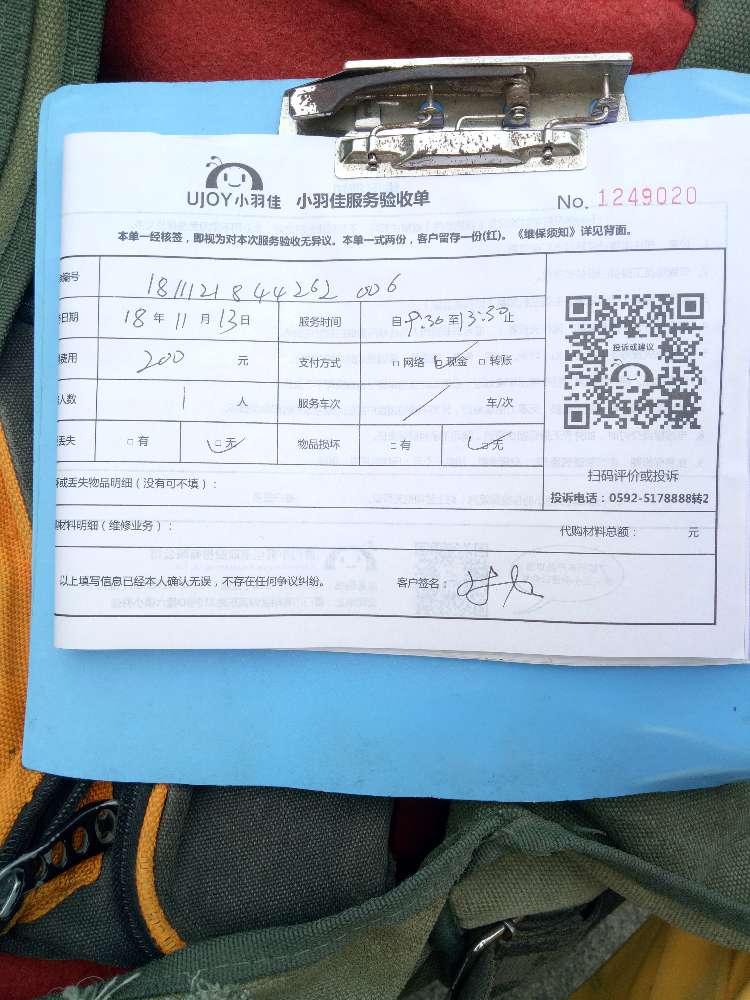 UJOY小羽佳 小羽佳服务验收单 No. 1249020
本单一经核签，即视为对本次服务验收无异议。本单一式两份，客户留存一份(红)。《维保须知》详见背面。
编号 1811121844262 006
日期 18年11月13日 服务时间 自9:30至13:30止
费用 200元 支付方式 □网络 □现金 □转账
人数 1人 服务车次 / 车/次
丢失 □有 □无 物品损坏 □有 □无
投诉或建议
扫码评价或投诉
投诉电话：0592-5178888转2
或丢失物品明细（没有可不填）：
材料明细（维修业务）： 代购材料总额： 元
以上填写信息已经本人确认无误，不存在任何争议纠纷。 客户签名：